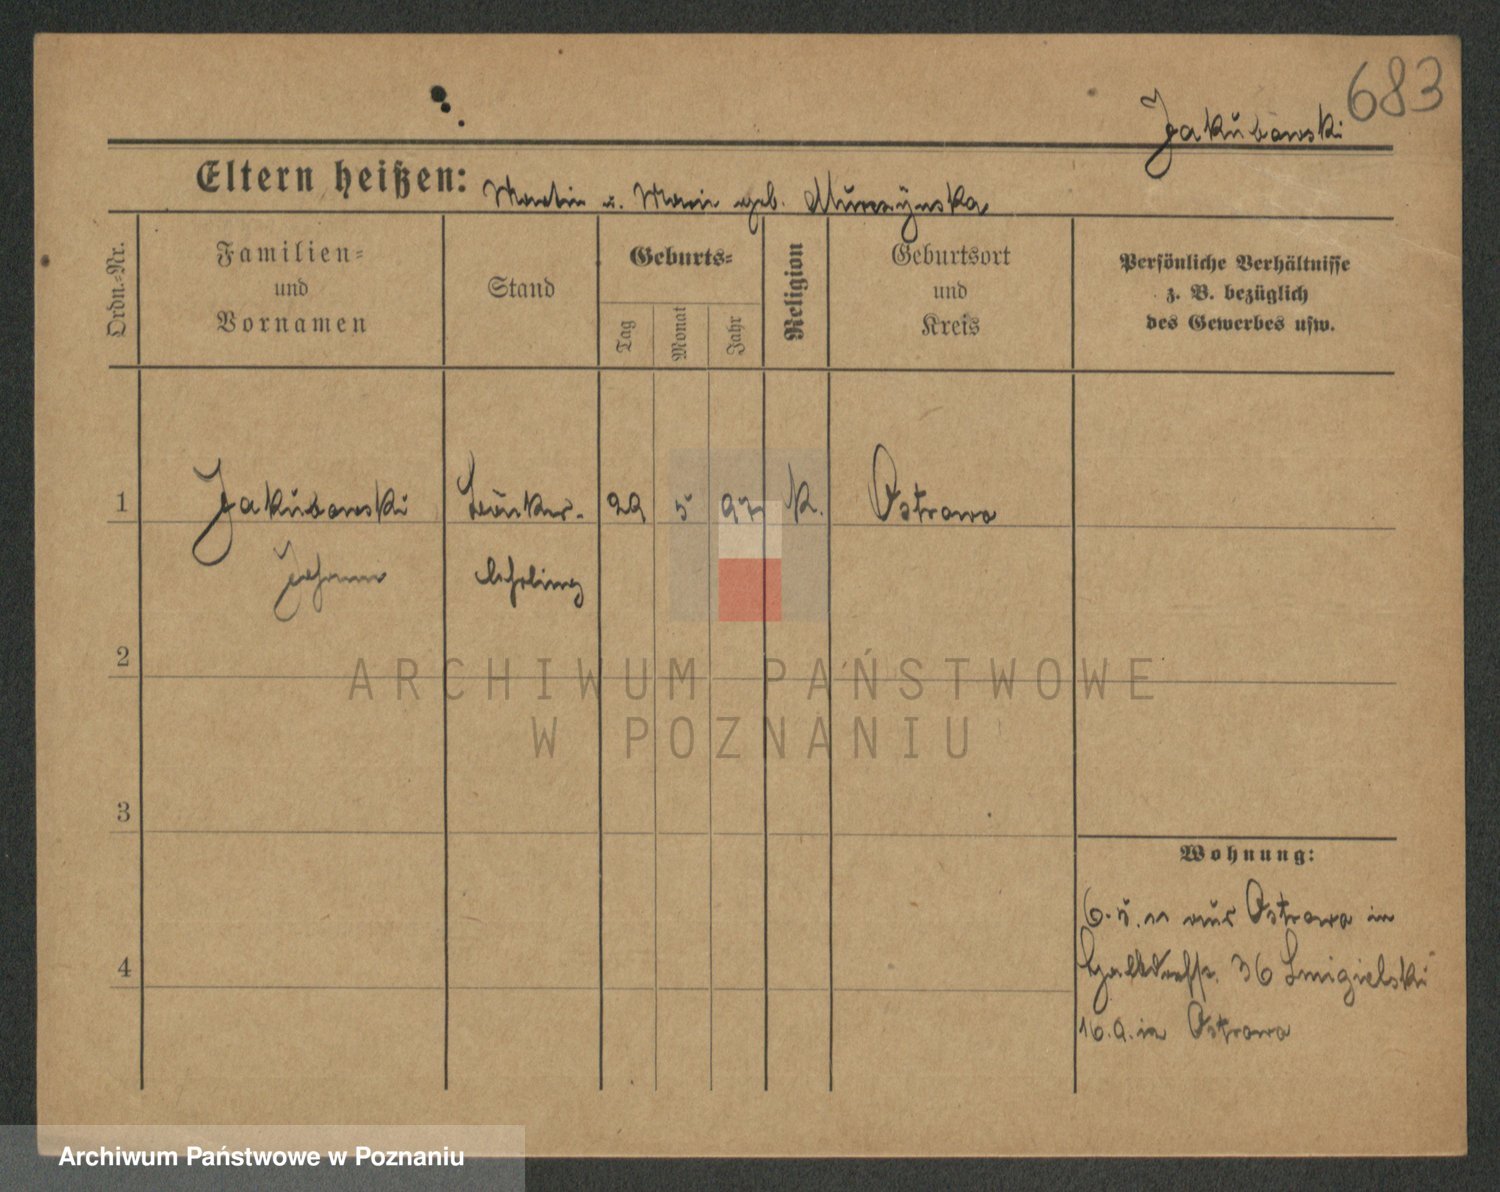 683
Jakubowski
Eltern heißen: Martin u. Marie geb. Murszynska
Ordn.-Nr.
Familien-
und
Vornamen
Stand
Geburts-
Tag
Monat
Jahr
Religion
Geburtsort
und
Kreis
Persönliche Verhältnisse
z. B. bezüglich
des Gewerbes usw.
1 Jakubowski 22 5 97 K. Ostrowo
Johann lehrling
2
3
4
Wohnung:
6.5.11 aus Ostrowo in
36 Smigielski
16.9. in Ostrowo
ARCHIWUM PAŃSTWOWE
W POZNANIU
Archiwum Państwowe w Poznaniu